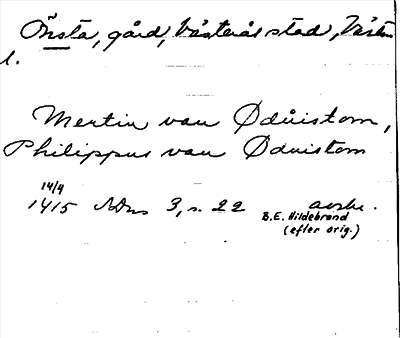 Önsta, gård, Västerås stad, Västm
l.
Mertin van Ødúistom,
Philippus van Ødnistom
14/9
1415 SDns 3, s. 22 avskr.
B.E. Hildebrand
(efter orig.)